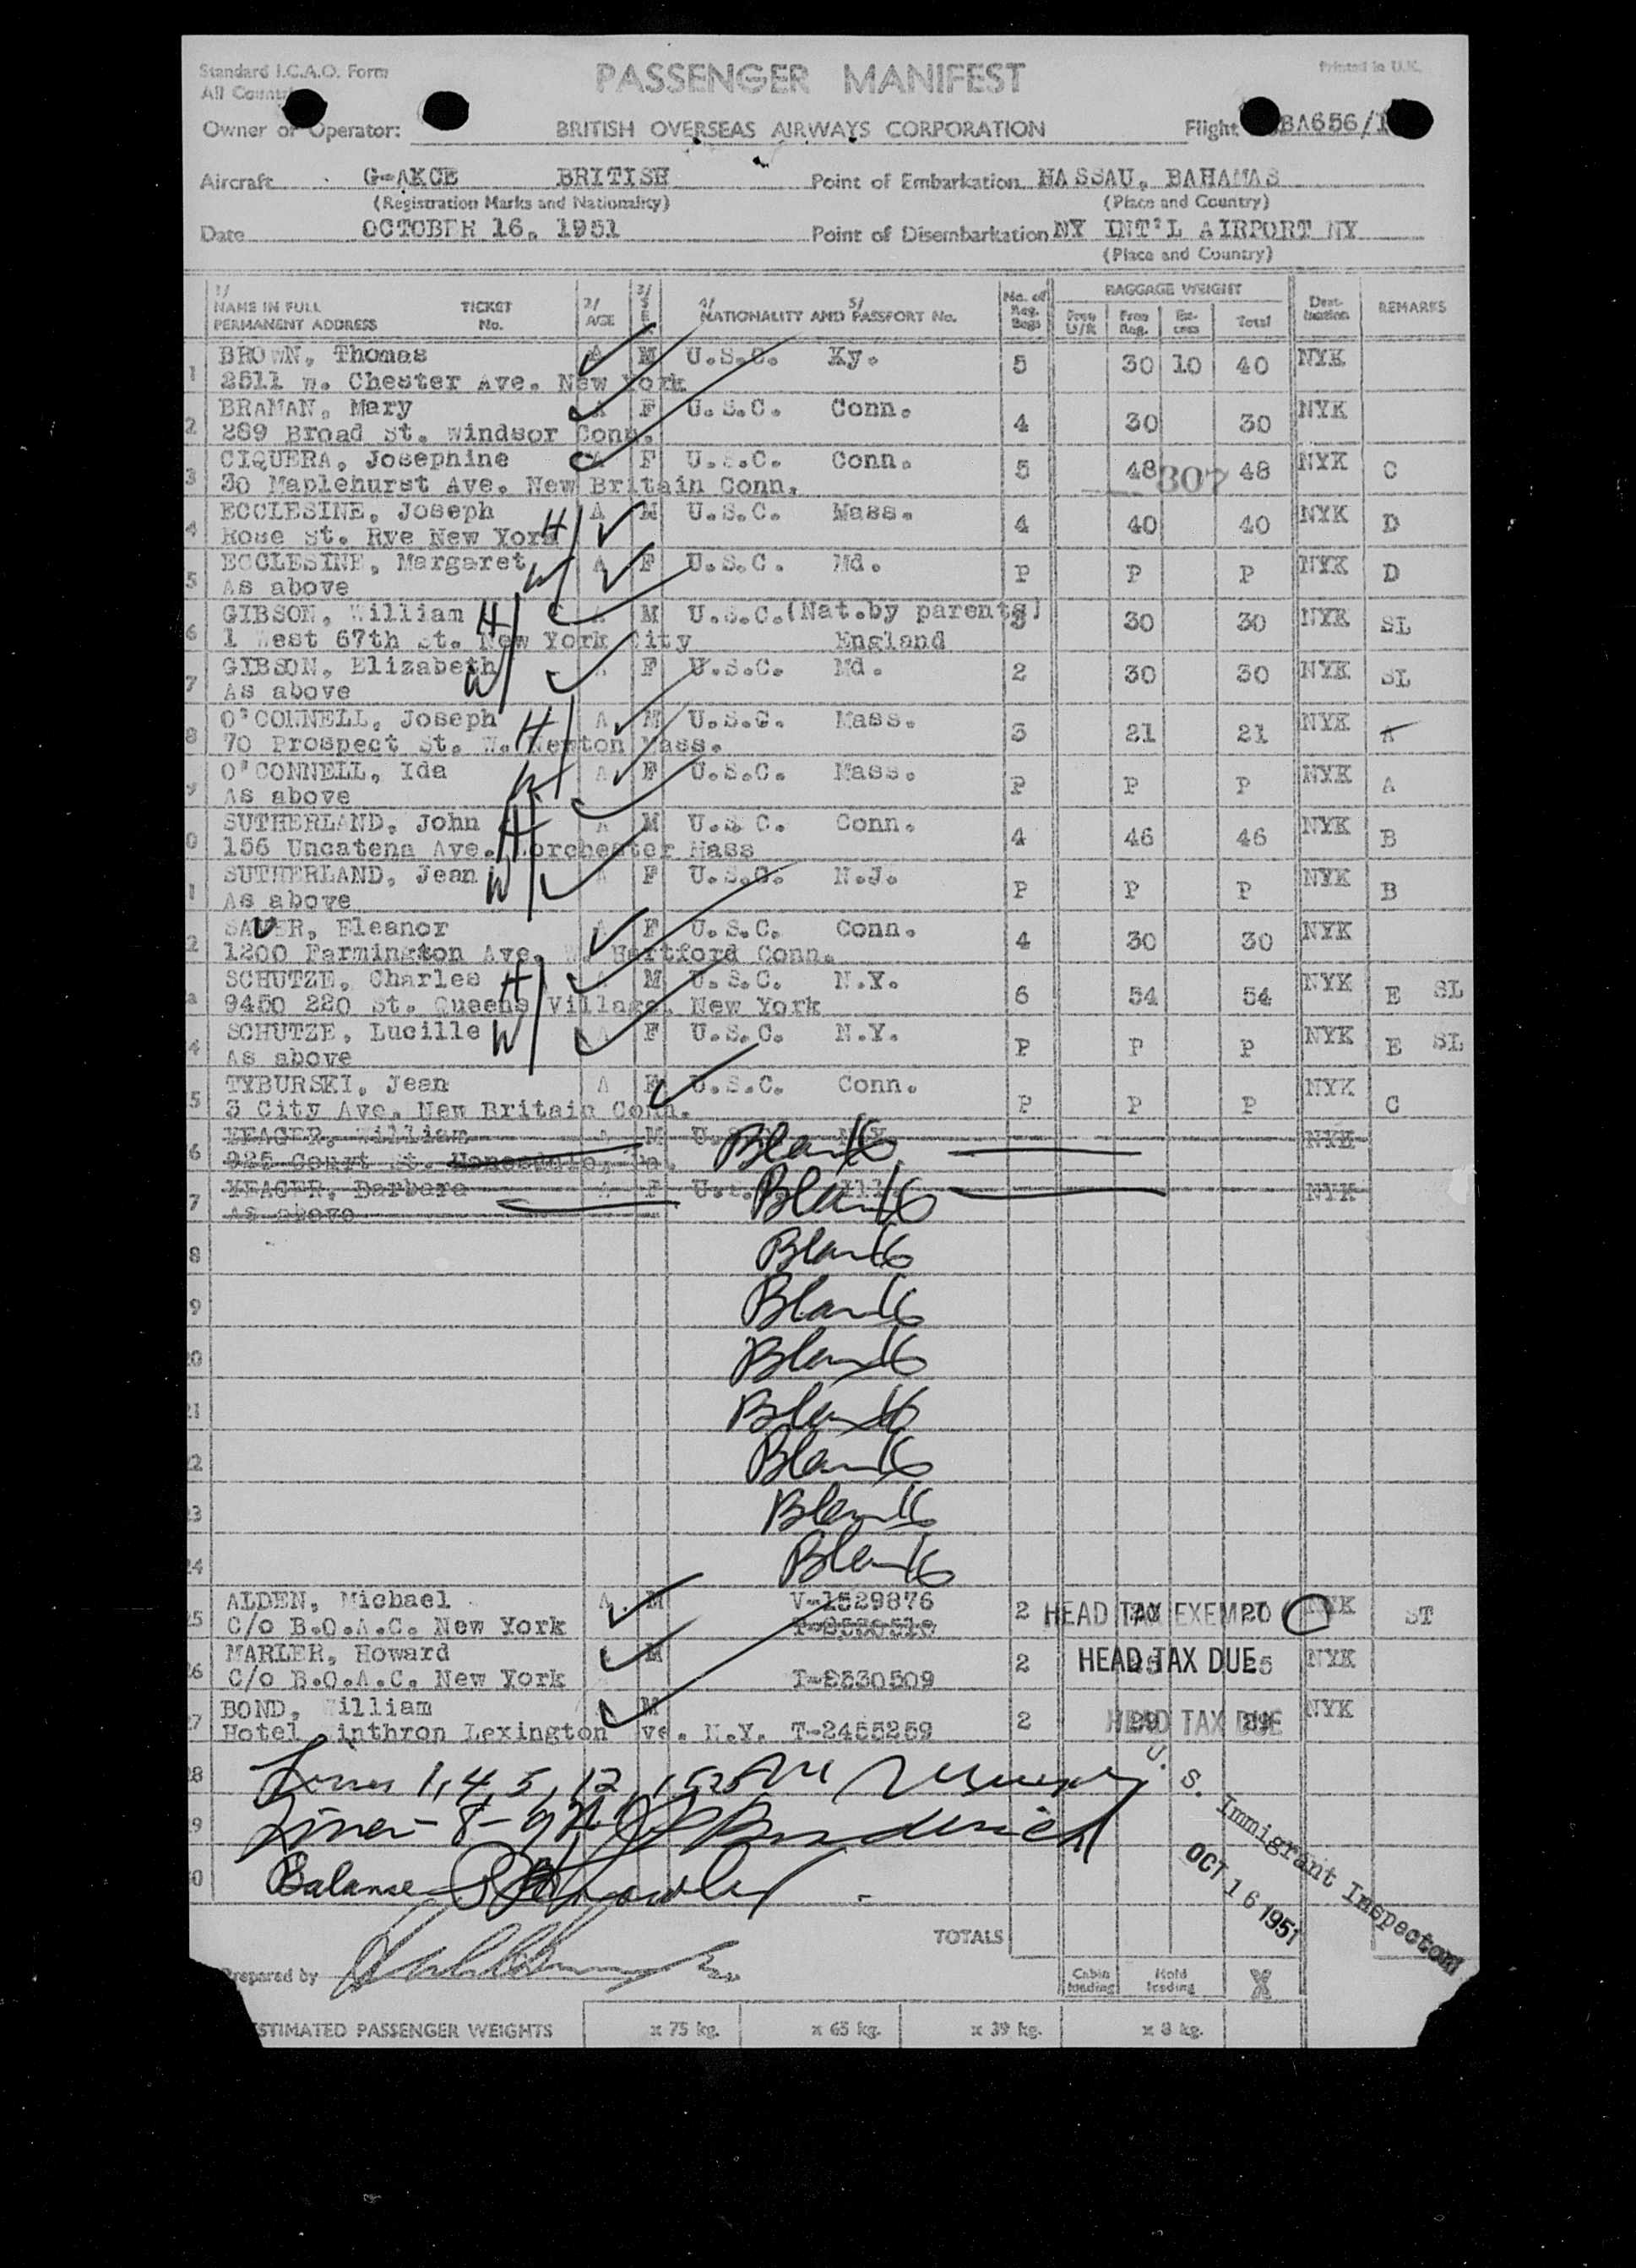 Standard I.C.A.O. Form
PASSENGER MANIFEST
Printed in U.K.
All
Owner or Operator: BRITISH OVERSEAS AIRWAYS CORPORATION Flight BA656/1
Aircraft G-AKCE BRITISH Point of Embarkation NASSAU, BAHAMAS
(Registration Marks and Nationality) (Place and Country)
Date OCTOBER 16, 1951 Point of Disembarkation NY INT'L AIRPORT NY
(Place and Country)
1/ NAME IN FULL PERMANENT ADDRESS TICKET No. 2/ AGE 3/ SEX 4/ NATIONALITY AND 5/ PASSPORT No. No. of Reg. Bags BAGGAGE WEIGHT Free U/R Free Reg. Ex-cess Total Dest-ination REMARKS
1 BROWN, Thomas A M U.S.C. Ky. 5 30 10 40 NYK
2511 W. Chester Ave. New York
2 BRAMAN, Mary A F U.S.C. Conn. 4 30 30 NYK
289 Broad St. Windsor Conn.
3 CIQUERA, Josephine A F U.S.C. Conn. 5 48 307 48 NYK C
30 Maplehurst Ave. New Britain Conn.
4 ECCLESINE, Joseph H A M U.S.C. Mass. 4 40 40 NYK D
Rose St. Rye New York
5 ECCLESINE, Margaret W A F U.S.C. Md. P P P NYK D
As above
6 GIBSON, William H A M U.S.C.(Nat.by parents) 3 30 30 NYK SL
1 West 67th St. New York City England
7 GIBSON, Elizabeth W A F U.S.C. Md. 2 30 30 NYK SL
As above
8 O'CONNELL, Joseph H A M U.S.C. Mass. 3 21 21 NYK A
70 Prospect St. W. Newton Mass.
9 O'CONNELL, Ida W A F U.S.C. Mass. P P P NYK A
As above
0 SUTHERLAND, John H A M U.S.C. Conn. 4 46 46 NYK B
156 Uncatena Ave. Dorchester Mass
1 SUTHERLAND, Jean W A F U.S.C. N.J. P P P NYK B
As above
2 SAVER, Eleanor A F U.S.C. Conn. 4 30 30 NYK
1200 Farmington Ave. W. Hartford Conn.
3 SCHUTZE, Charles H A M U.S.C. N.Y. 6 54 54 NYK E SL
9450 220 St. Queens Village, New York
4 SCHUTZE, Lucille W A F U.S.C. N.Y. P P P NYK E SL
As above
5 TYBURSKI, Jean A F U.S.C. Conn. P P P NYK C
3 City Ave. New Britain Conn.
6 YEAGER, William A M Blank NYK
925 Court St.
7 YEAGER, Barbara A F Blank NYK
As above
8 Blank
9 Blank
20 Blank
21 Blank
22 Blank
23 Blank
24 Blank
25 ALDEN, Michael A M V-1529876 2 HEAD TAX EXEMPT 20 NYK ST
C/o B.O.A.C. New York
26 MARLER, Howard M 2 HEAD TAX DUE NYK
C/o B.O.A.C. New York T-2530509
27 BOND, William M 2 HEAD TAX DUE NYK
Hotel Winthron Lexington Ave. N.Y. T-2455259
28 Lines 1, 4, 5, 12, 15
29 Lines - 8 - 9
30 Balance
U. S. Immigrant Inspector
OCT 16 1951
TOTALS
Prepared by
Cabin loading Hold loading
ESTIMATED PASSENGER WEIGHTS x 75 kg. x 65 kg. x 39 kg. x 8 kg.